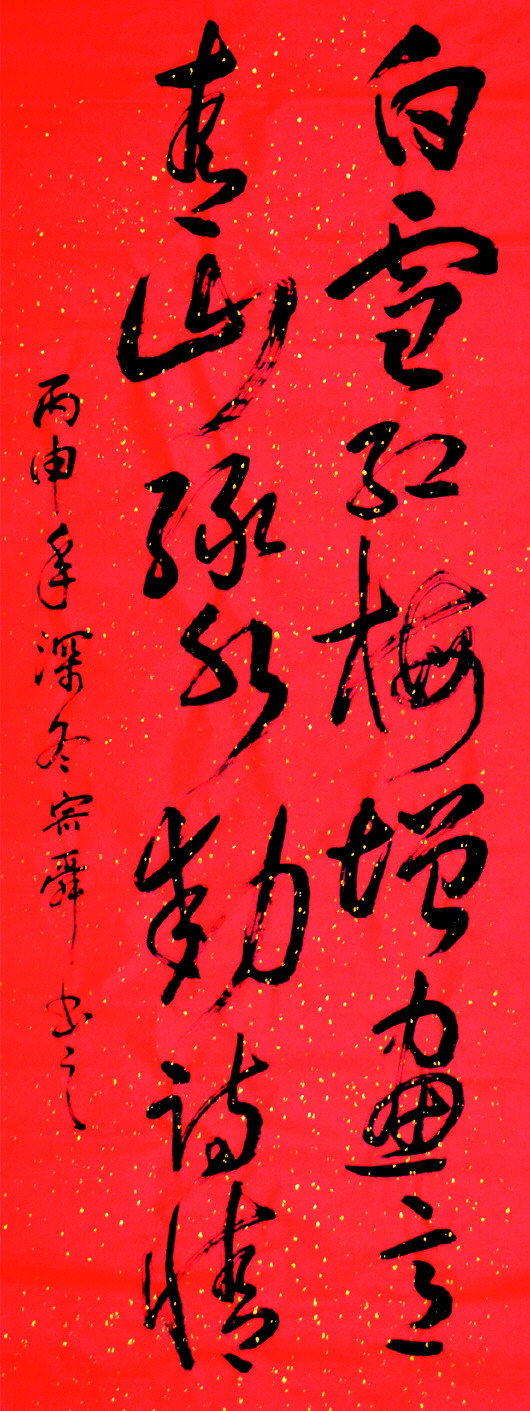 白雪红梅增画意
青山绿水動诗情
丙申年深冬宗舜书之